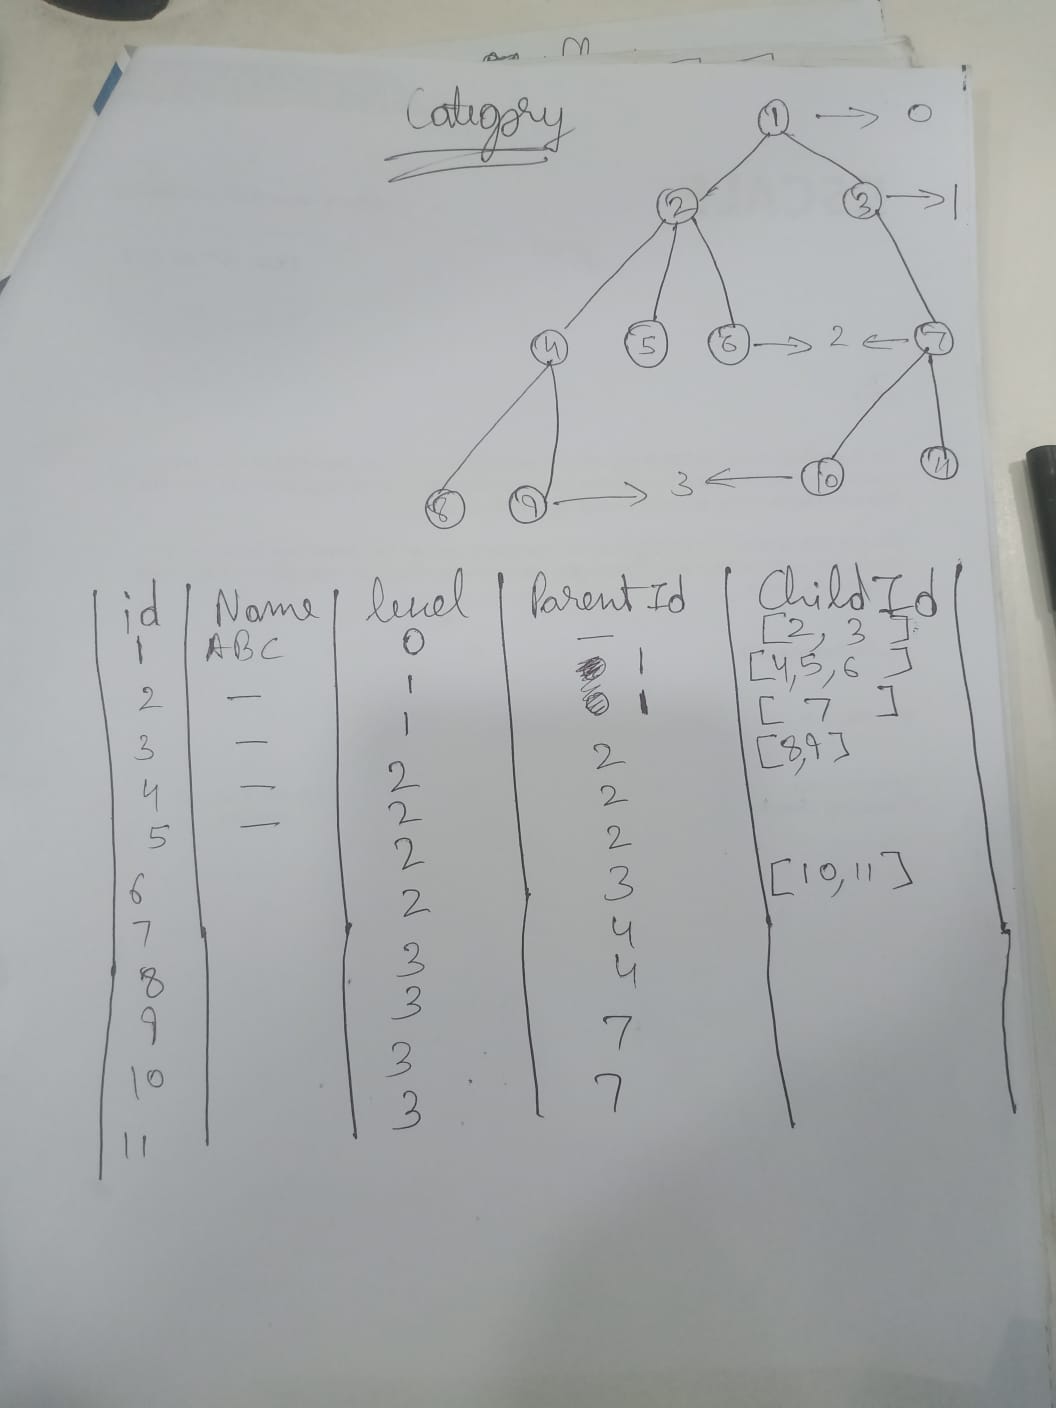 Category
1 → 0
2 3 → 1
4 5 6 → 2 ← 7
8 9 → 3 ← 10 11
id Name level Parent Id Child Id
1 ABC 0 — [2, 3]
2 — 1 1 [4,5,6]
3 — 1 1 [7]
4 — 2 2 [8,9]
5 — 2 2
6 2 2
7 2 3 [10,11]
8 3 4
9 3 4
10 3 7
11 3 7